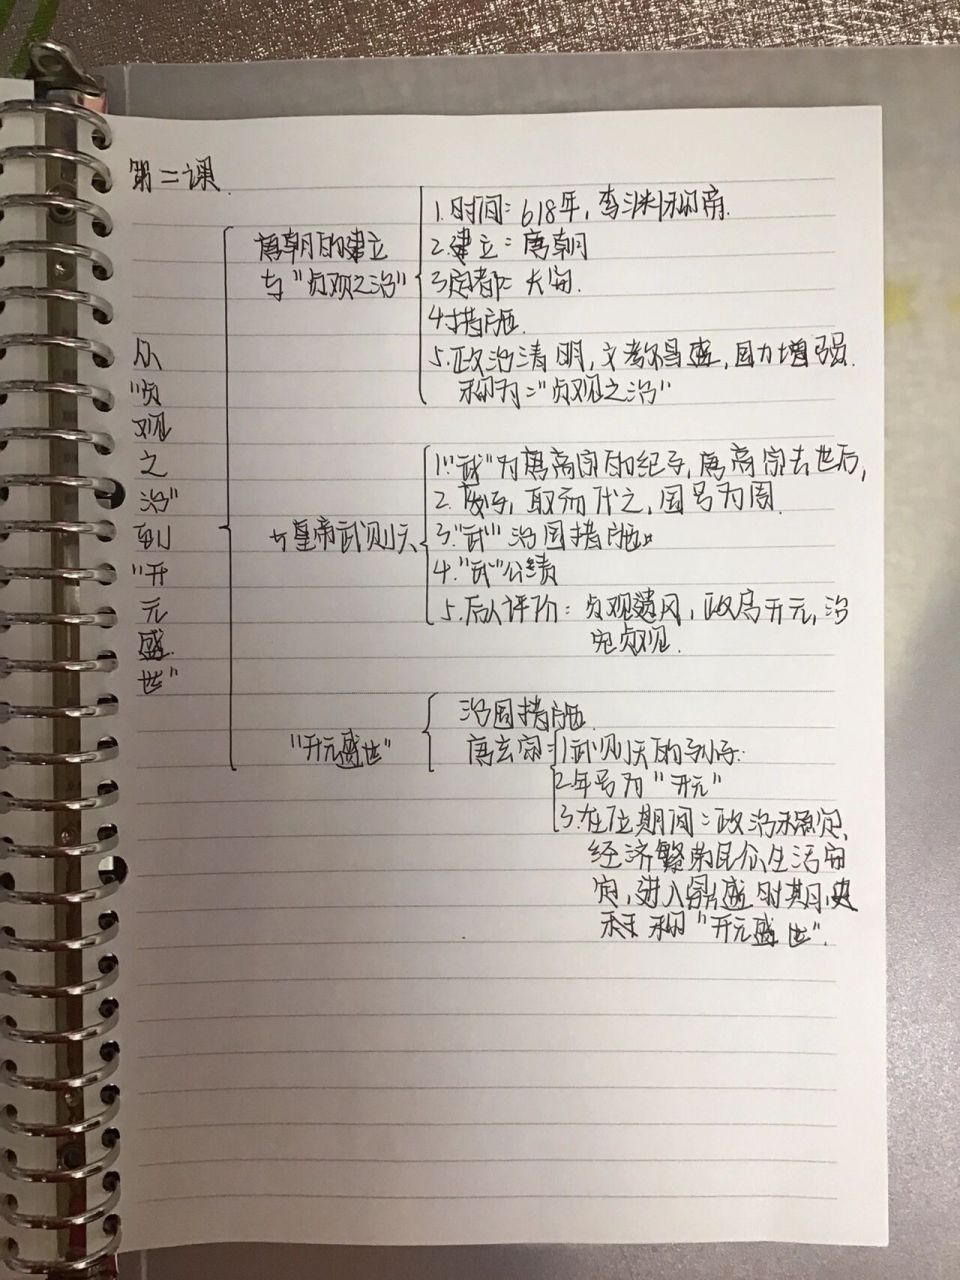 第二课
从"贞观之治"到"开元盛世"
唐朝的建立
与"贞观之治"
1.时间:618年,李渊称帝.
2.建立:唐朝
3.定都:长安.
4.措施.
5.政治清明,文教昌盛,国力增强.
称为:"贞观之治"
女皇帝武则天
1."武"为唐高宗的妃子,唐高宗去世后,
2. 取而代之,国号为周.
3."武"治国措施.
4."武"公绩
5.后人评价:贞观遗风,政启开元,治
宏贞观.
"开元盛世"
治国措施.
唐玄宗:1武则天的孙子.
2年号为"开元"
3.在位期间:政治稳定、
经济繁荣民众生活安
定,进入鼎盛时期,史
称"开元盛世".